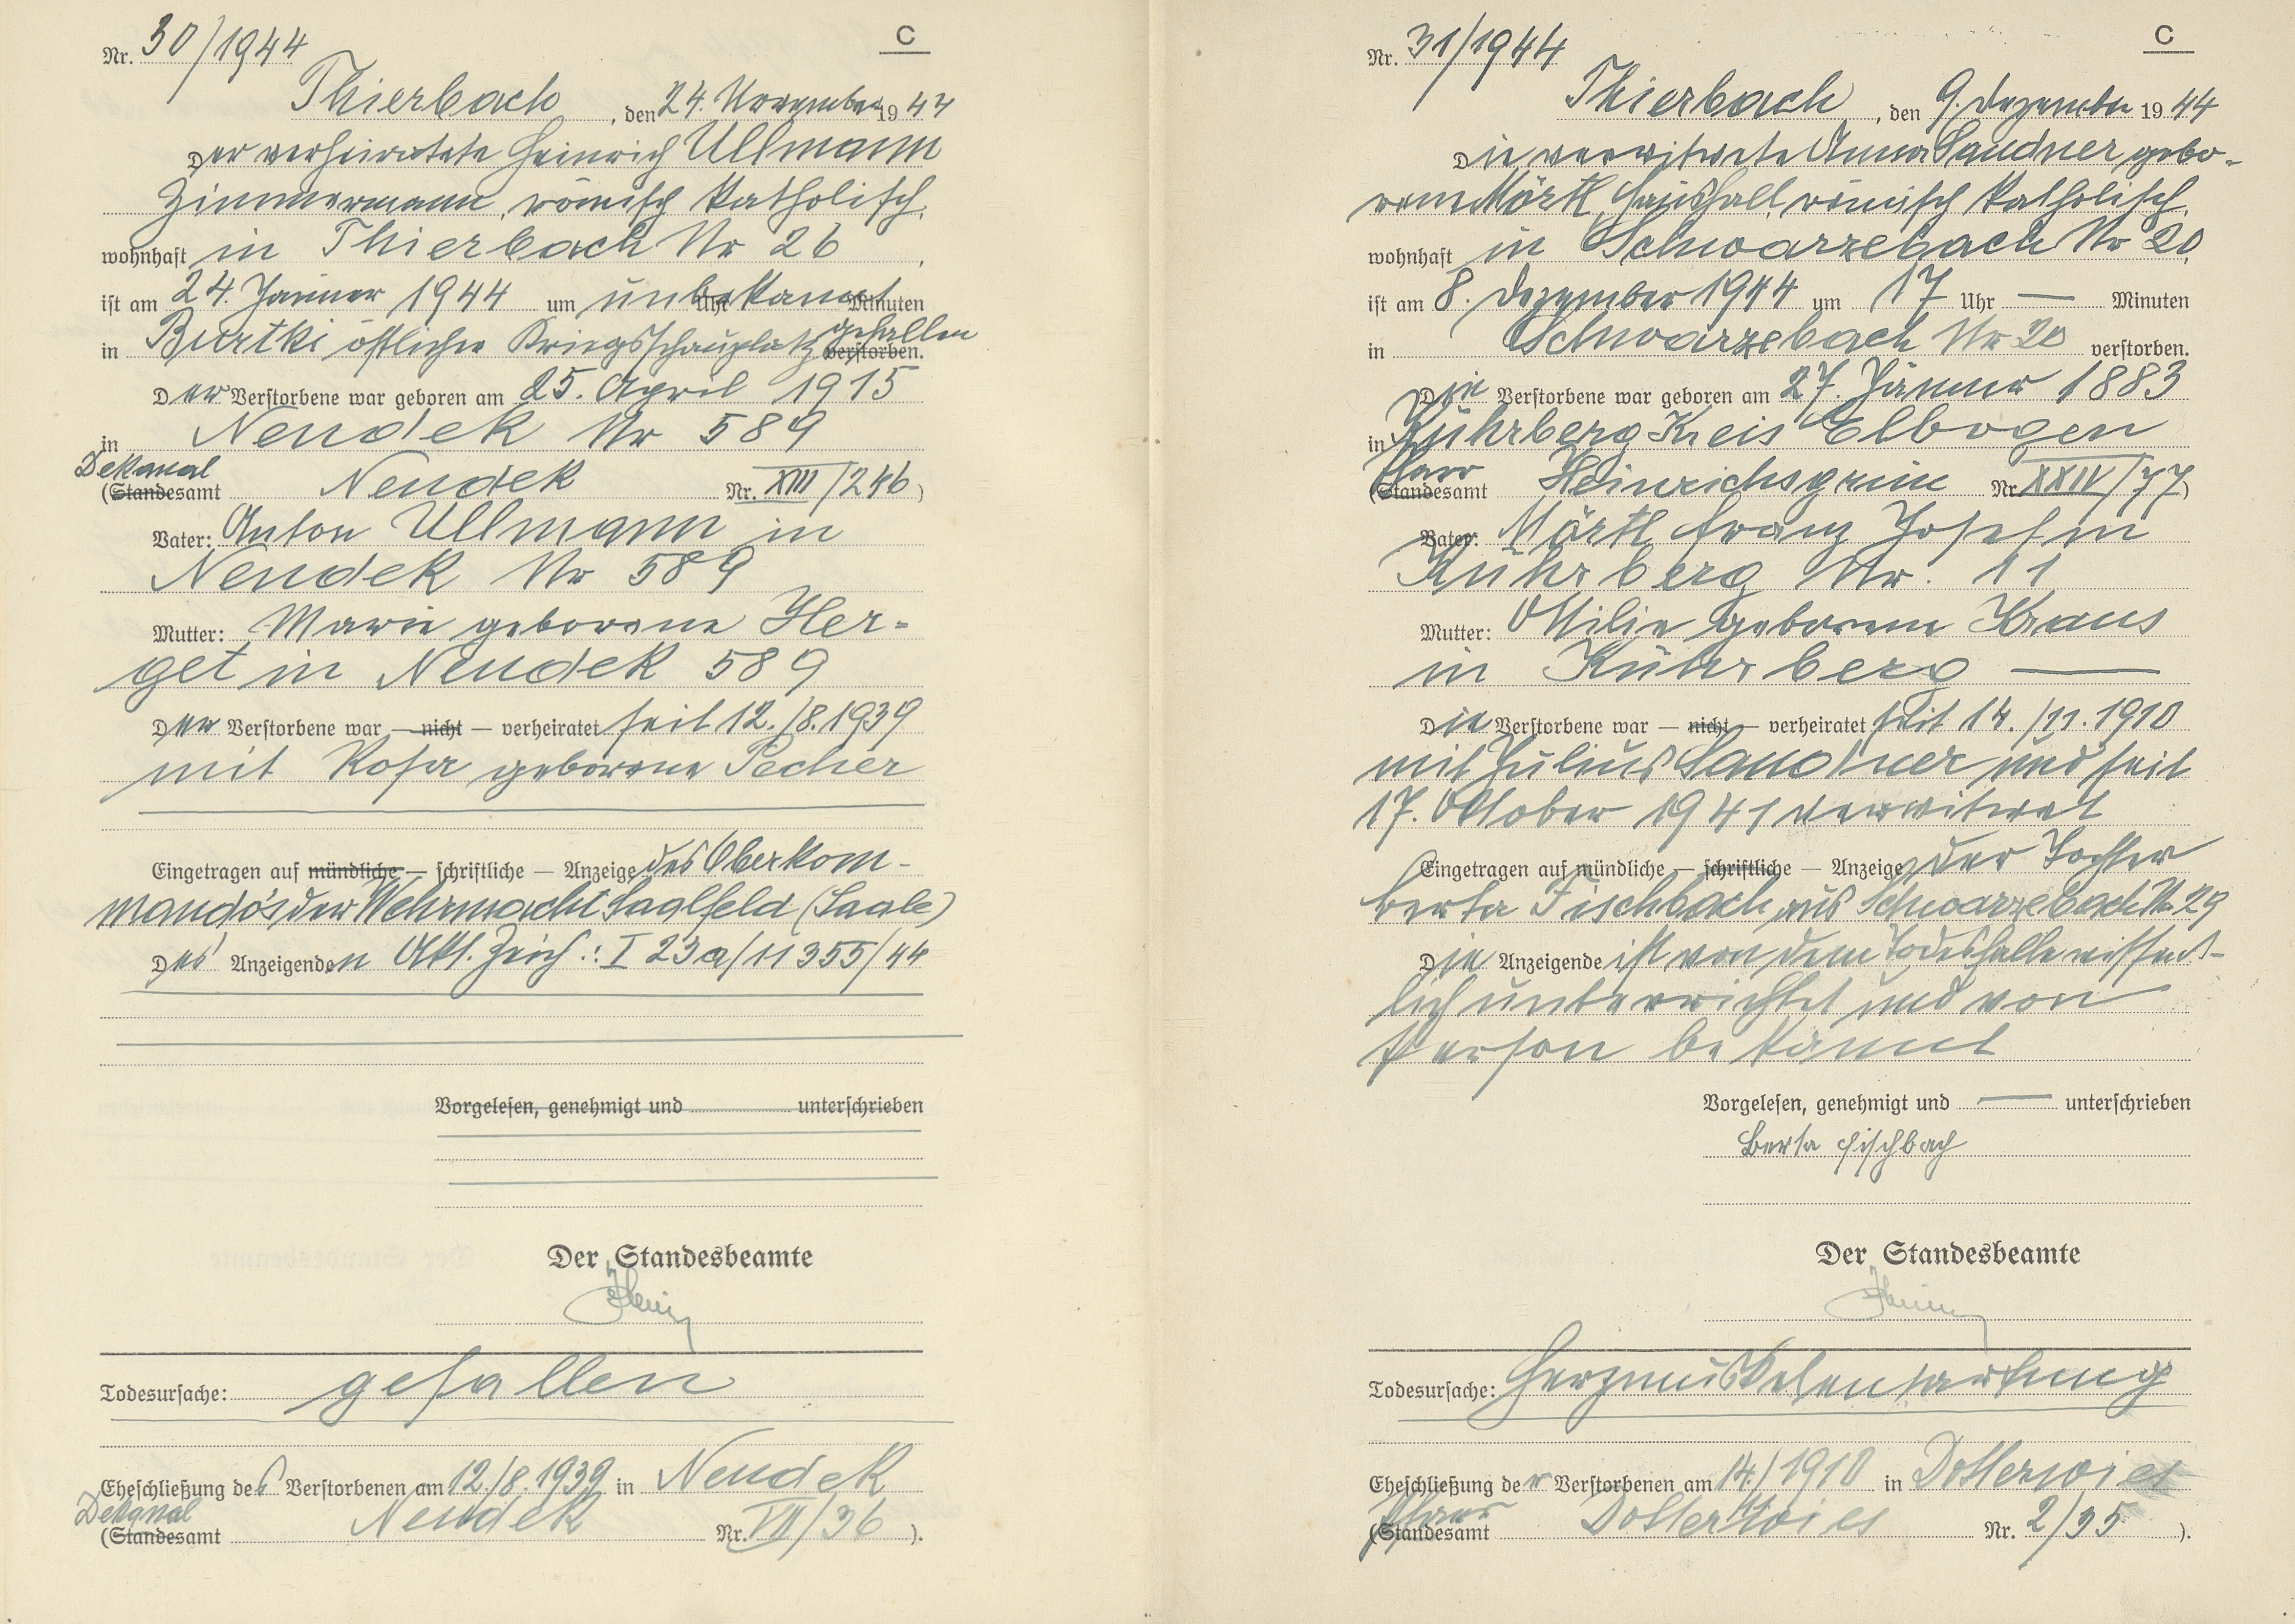 Nr. 30/1944
C
Thierbach, den 24. November 1944
Der verheiratete Heinrich Ullmann
Zimmermann, römisch katholisch,
wohnhaft in Thierbach Nr 26
ist am 24. Jänner 1944 um unbekannt Uhr Minuten
in Burtki östlicher Kriegsschauplatz gefallen verstorben.
Der Verstorbene war geboren am 25. April 1915
in Neudek Nr 589
Dekanal
(Standesamt Neudek Nr. XIII/246)
Vater: Anton Ullmann in
Neudek Nr 589
Mutter: Marie geborene Her-
get in Neudek 589
Der Verstorbene war — nicht — verheiratet seit 12./8.1939
mit Rosa geborene Pecher
Eingetragen auf mündliche — schriftliche — Anzeige des Oberkom-
mando's der Wehrmacht Saalfeld (Saale)
Des Anzeigenden Akt. Zeich.: I 23a/11355/44
Vorgelesen, genehmigt und unterschrieben
Der Standesbeamte
Todesursache: gefallen
Eheschließung des Verstorbenen am 12./8.1939 in Neudek
Dekanal
(Standesamt Neudek Nr. VII/36 ).
Nr. 31/1944
C
Thierbach, den 9. Dezember 1944
Die verwitwete Anna Sandner gebo-
rene Mörtl, Haushalt, römisch katholisch,
wohnhaft in Schwarzebach Nr 20,
ist am 8. Dezember 1944 um 17 Uhr — Minuten
in Schwarzebach Nr 20 verstorben.
Die Verstorbene war geboren am 27. Jänner 1883
in Kührberg Kreis Elbogen
Pfarr
(Standesamt Heinrichsgrün Nr. XXIV/77)
Vater: Mörtl Franz Josef in
Kührberg Nr. 11
Mutter: Ottilie geborene Kraus
in Kührberg —
Die Verstorbene war — nicht — verheiratet seit 14./11.1910
mit Julius Sandner und seit
17. Oktober 1941 verwitwet
Eingetragen auf mündliche — schriftliche — Anzeige der Tochter
Berta Fischbach aus Schwarzebach Nr 29
Die Anzeigende ist von dem Todesfalle wissent-
lich unterrichtet und von
Person bekannt
Vorgelesen, genehmigt und — unterschrieben
Berta Fischbach
Der Standesbeamte
Todesursache: Herzmuskelentartung
Eheschließung der Verstorbenen am 14./11 1910 in Dotterwies
Pfarr
(Standesamt Dotterwies Nr. 2/35 ).